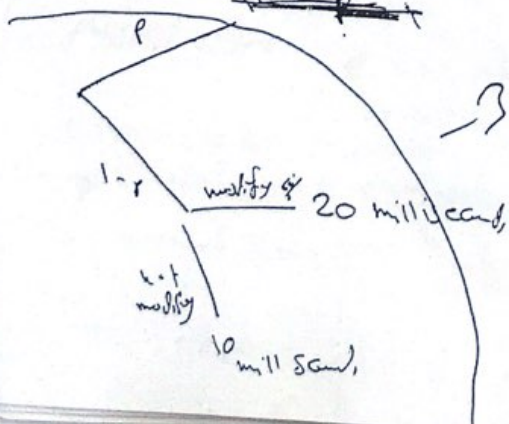 P
3
1-p
modify if 20 milliseconds,
not
modify
10
milliseconds,